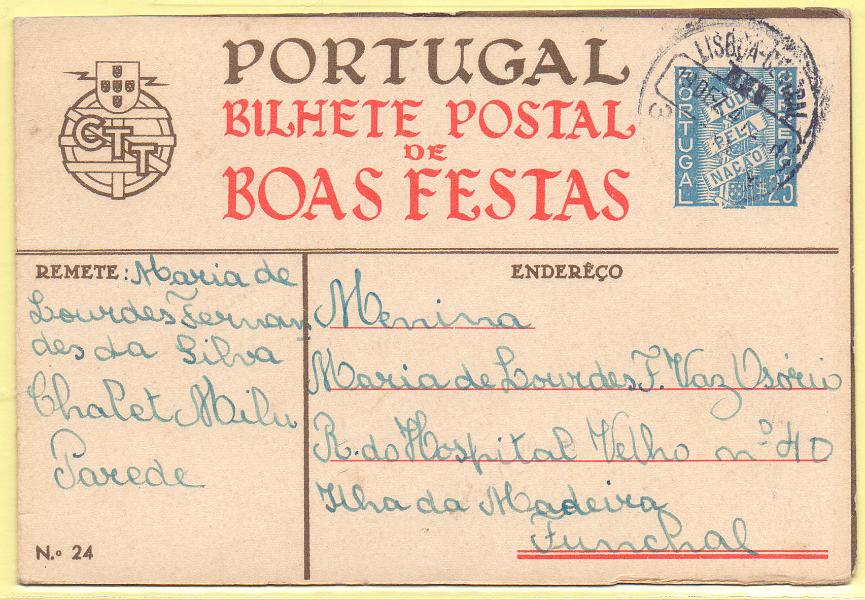 PORTUGAL
BILHETE POSTAL
DE
BOAS FESTAS
CTT
LISBOA-CENTRAL
PORTUGAL
CORREIO
TUDO
PELA
NAÇÃO
$25
REMETE: Maria de
Lourdes Fernan
des da Silva
Chalet Milu
Parede
N.º 24
ENDERÊÇO
Menina
Maria de Lourdes F. Vaz Osório
R. do Hospital Velho nº 40
Ilha da Madeira
Funchal